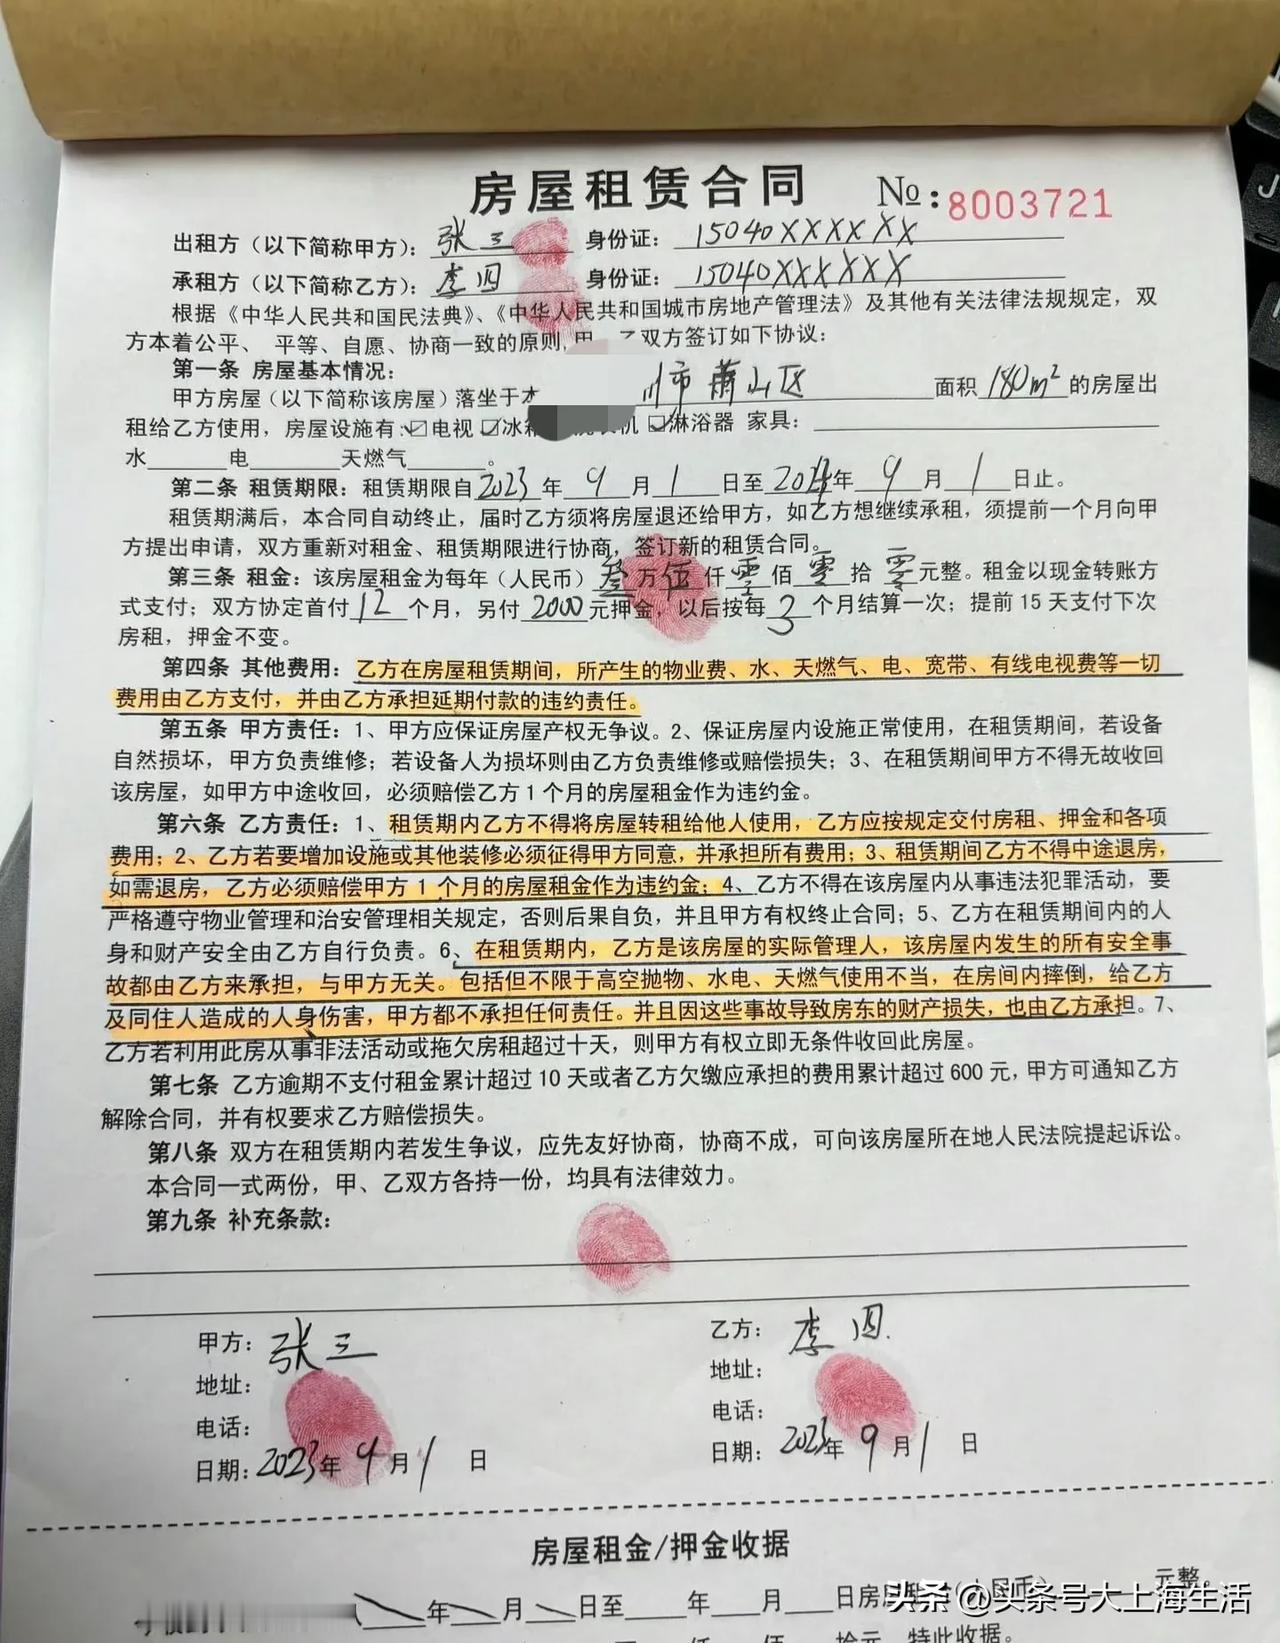 房屋租赁合同 №:8003721
出租方（以下简称甲方）：张三 身份证：15040XXXXXX
承租方（以下简称乙方）：李四 身份证：15040XXXXXX
根据《中华人民共和国民法典》、《中华人民共和国城市房地产管理法》及其他有关法律法规规定，双
方本着公平、平等、自愿、协商一致的原则，甲、乙双方签订如下协议：
第一条 房屋基本情况：
甲方房屋（以下简称该房屋）落坐于本 市萧山区 面积180m²的房屋出
租给乙方使用，房屋设施有：☑电视 ☑冰箱 机 ☑淋浴器 家具：
水____电____天燃气____。
第二条 租赁期限：租赁期限自2023年9月1日至2024年9月1日止。
租赁期满后，本合同自动终止，届时乙方须将房屋退还给甲方，如乙方想继续承租，须提前一个月向甲
方提出申请，双方重新对租金、租赁期限进行协商，签订新的租赁合同。
第三条 租金：该房屋租金为每年（人民币）叁万伍仟零佰零拾零元整。租金以现金转账方
式支付；双方协定首付12个月，另付2000元押金，以后按每3个月结算一次；提前15天支付下次
房租，押金不变。
第四条 其他费用：乙方在房屋租赁期间，所产生的物业费、水、天燃气、电、宽带、有线电视费等一切
费用由乙方支付，并由乙方承担延期付款的违约责任。
第五条 甲方责任：1、甲方应保证房屋产权无争议。2、保证房屋内设施正常使用，在租赁期间，若设备
自然损坏，甲方负责维修；若设备人为损坏则由乙方负责维修或赔偿损失；3、在租赁期间甲方不得无故收回
该房屋，如甲方中途收回，必须赔偿乙方1个月的房屋租金作为违约金。
第六条 乙方责任：1、租赁期内乙方不得将房屋转租给他人使用，乙方应按规定交付房租、押金和各项
费用；2、乙方若要增加设施或其他装修必须征得甲方同意，并承担所有费用；3、租赁期间乙方不得中途退房，
如需退房，乙方必须赔偿甲方1个月的房屋租金作为违约金；4、乙方不得在该房屋内从事违法犯罪活动，要
严格遵守物业管理和治安管理相关规定，否则后果自负，并且甲方有权终止合同；5、乙方在租赁期间内的人
身和财产安全由乙方自行负责。6、在租赁期内，乙方是该房屋的实际管理人，该房屋内发生的所有安全事
故都由乙方来承担，与甲方无关。包括但不限于高空抛物、水电、天燃气使用不当，在房间内摔倒，给乙方
及同住人造成的人身伤害，甲方都不承担任何责任。并且因这些事故导致房东的财产损失，也由乙方承担。7、
乙方若利用此房从事非法活动或拖欠房租超过十天，则甲方有权立即无条件收回此房屋。
第七条 乙方逾期不支付租金累计超过10天或者乙方欠缴应承担的费用累计超过600元，甲方可通知乙方
解除合同，并有权要求乙方赔偿损失。
第八条 双方在租赁期内若发生争议，应先友好协商，协商不成，可向该房屋所在地人民法院提起诉讼。
本合同一式两份，甲、乙双方各持一份，均具有法律效力。
第九条 补充条款：
甲方：张三 乙方：李四
地址： 地址：
电话： 电话：
日期：2023年9月1日 日期：2023年9月1日
房屋租金/押金收据
年__月__日至__年__月__日房 元整。
佰 拾元 特此收据。
头条 @头条号大上海生活